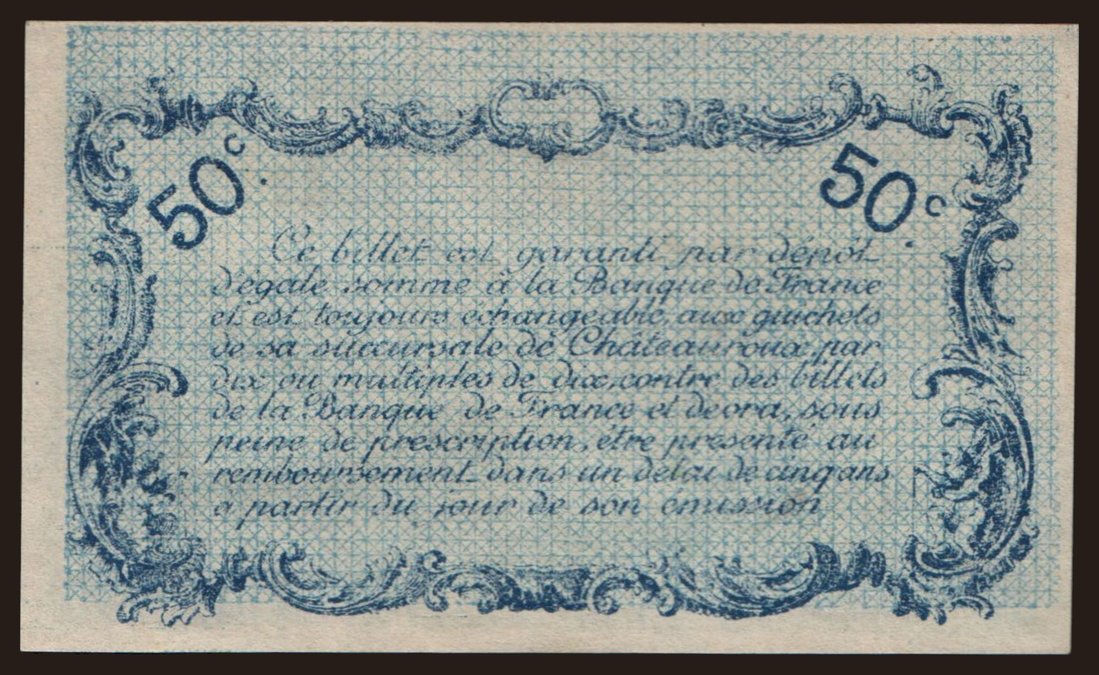 50c.
50c.
Ce billet est garanti par dépôt
d'égale somme à la Banque de France
et est toujours échangeable, aux guichets
de sa succursale de Châteauroux, par
dix ou multiples de dix, contre des billets
de la Banque de France et devra, sous
peine de prescription, être présenté au
remboursement dans un délai de cinq ans
à partir du jour de son émission